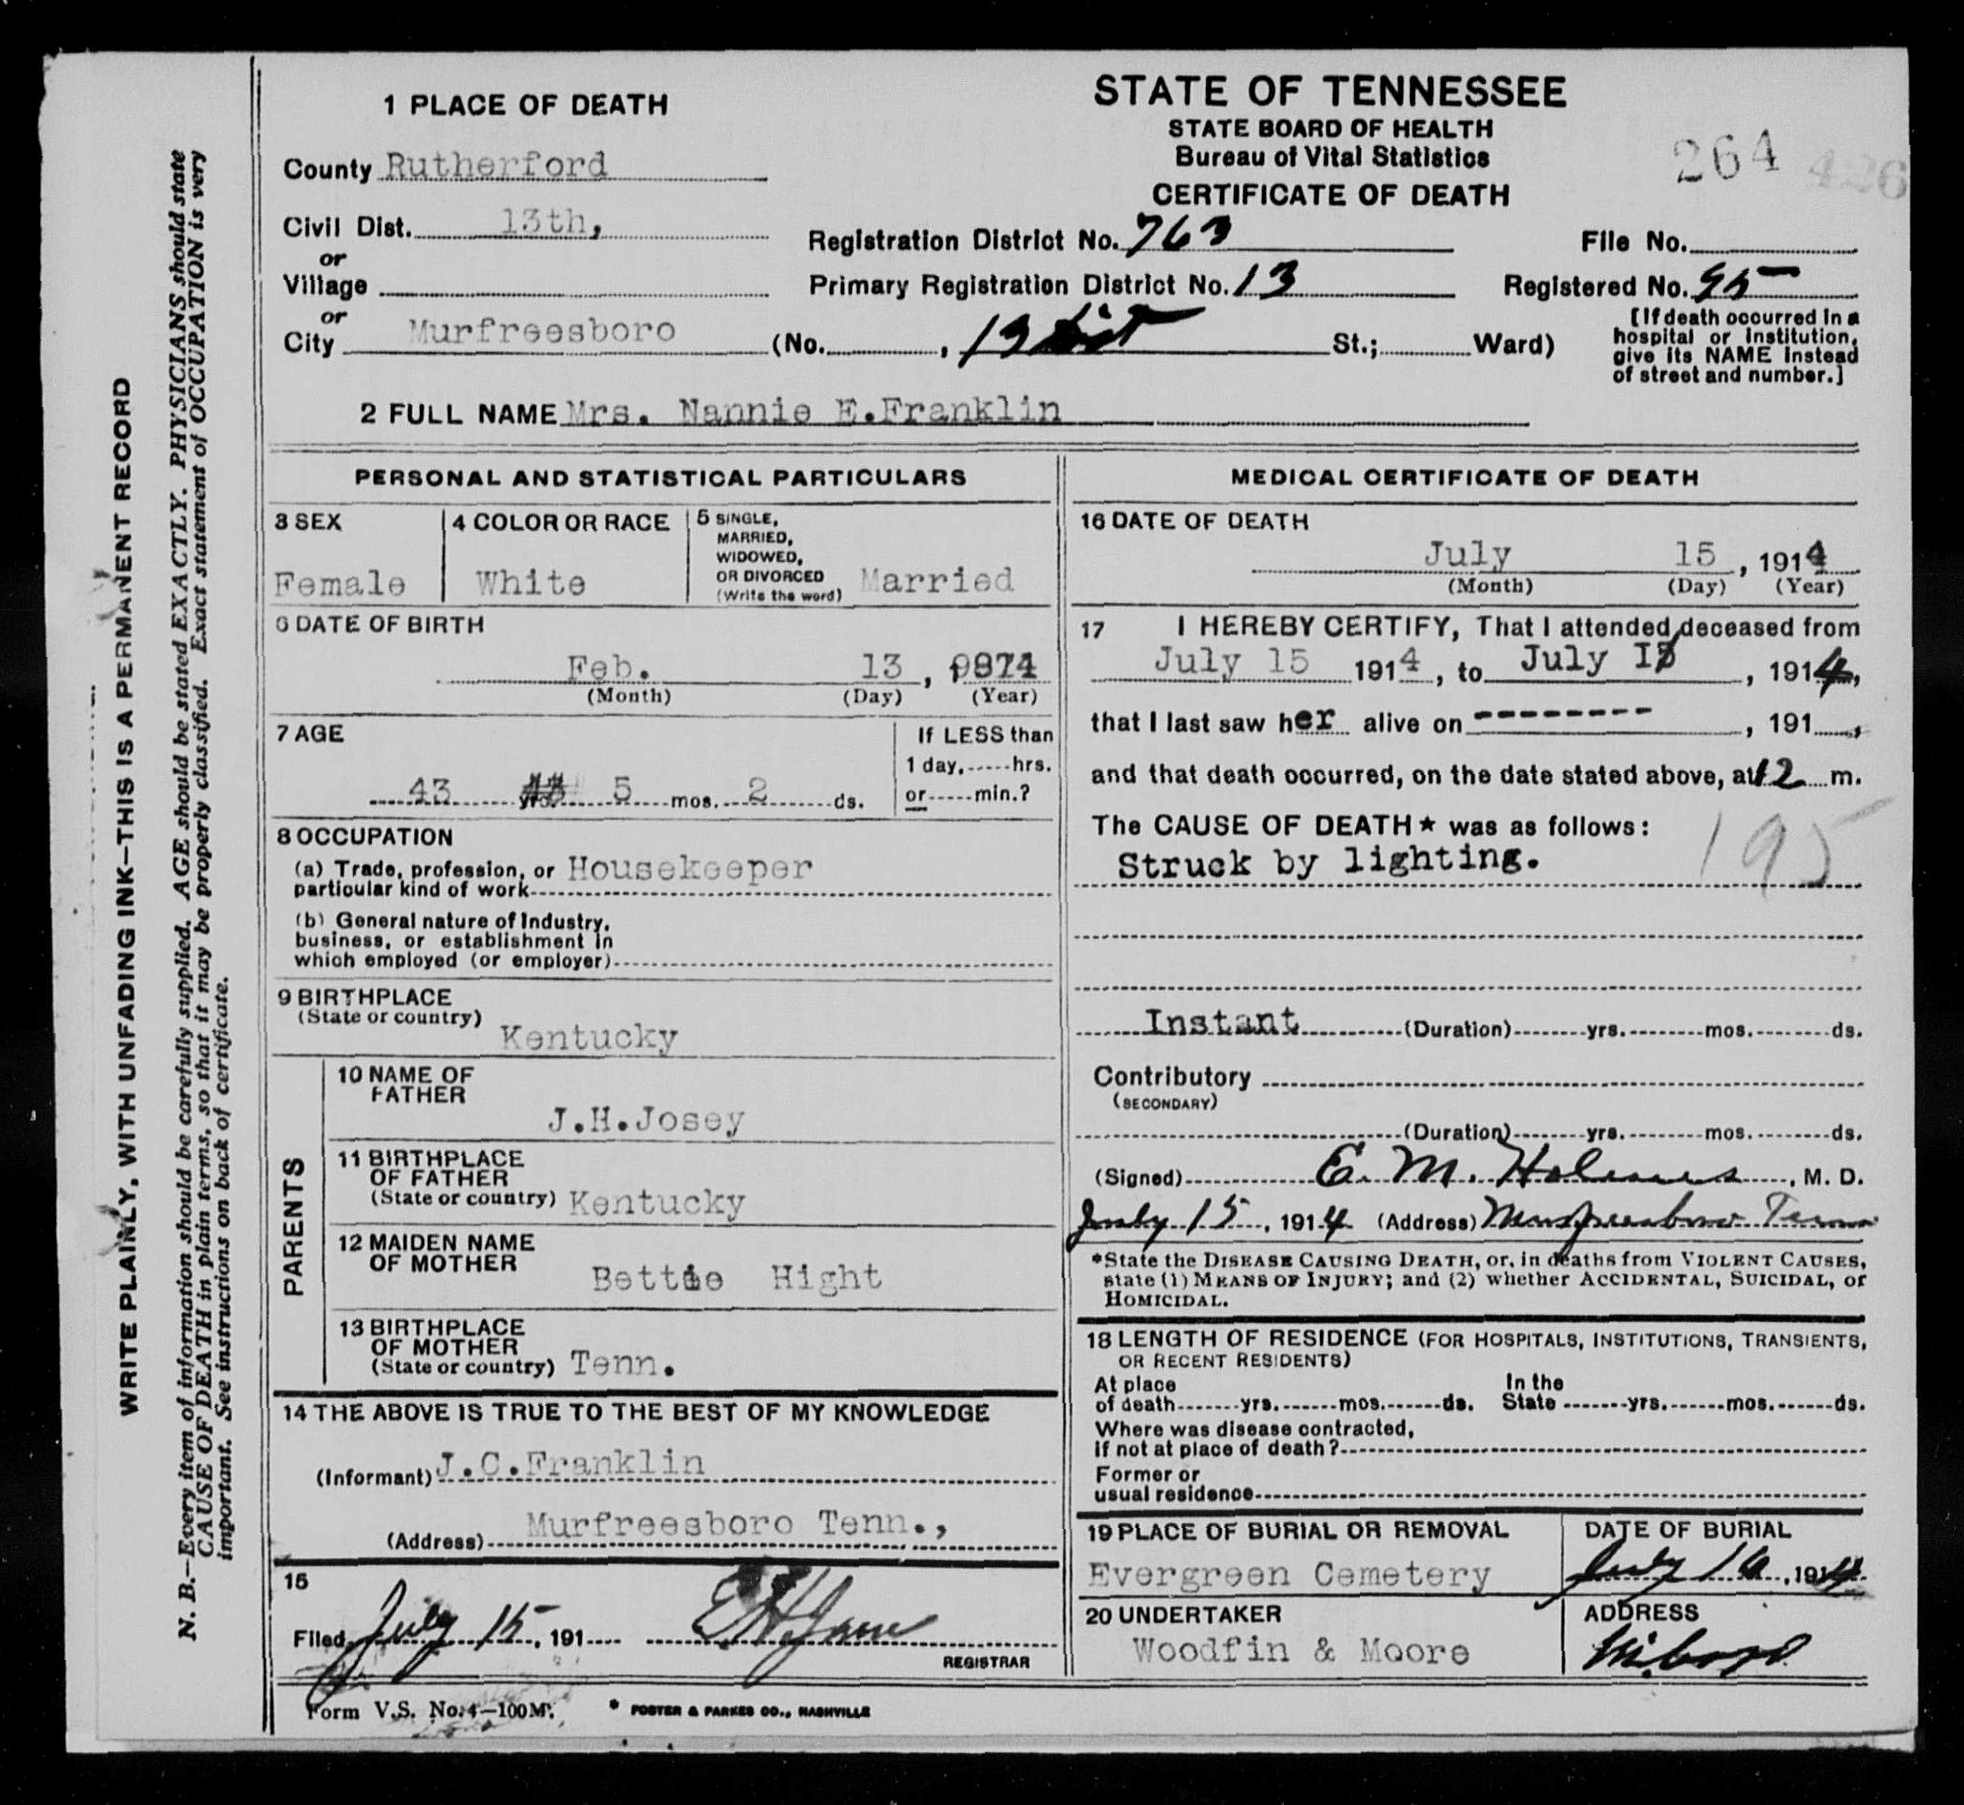 1 PLACE OF DEATH
County Rutherford
Civil Dist. 13th,
or
Village
or
City Murfreesboro (No. , 13 Dist St.; Ward)
STATE OF TENNESSEE
STATE BOARD OF HEALTH
Bureau of Vital Statistics
CERTIFICATE OF DEATH
264 426
Registration District No. 763 File No.
Primary Registration District No. 13 Registered No. 95
[If death occurred in a
hospital or institution,
give its NAME instead
of street and number.]
2 FULL NAME Mrs. Nannie E.Franklin
PERSONAL AND STATISTICAL PARTICULARS
3 SEX
Female
4 COLOR OR RACE
White
5 SINGLE,
MARRIED,
WIDOWED,
OR DIVORCED
(Write the word) Married
6 DATE OF BIRTH
Feb. 13 ,
(Month) (Day) (Year)
7 AGE
43 yrs. 5 mos. 2 ds.
If LESS than
1 day, hrs.
or min.?
8 OCCUPATION
(a) Trade, profession, or Housekeeper
particular kind of work
(b) General nature of Industry,
business, or establishment in
which employed (or employer)
9 BIRTHPLACE
(State or country)
Kentucky
PARENTS
10 NAME OF
FATHER
J.H.Josey
11 BIRTHPLACE
OF FATHER
(State or country) Kentucky
12 MAIDEN NAME
OF MOTHER
Bettie Hight
13 BIRTHPLACE
OF MOTHER
(State or country) Tenn.
14 THE ABOVE IS TRUE TO THE BEST OF MY KNOWLEDGE
(Informant) J.C.Franklin
(Address) Murfreesboro Tenn.,
15
Filed July 15, 191
REGISTRAR
Form V.S. No. 4—100M.
* FOSTER & PARKES CO., NASHVILLE
MEDICAL CERTIFICATE OF DEATH
16 DATE OF DEATH
July 15 , 1914
(Month) (Day) (Year)
17 I HEREBY CERTIFY, That I attended deceased from
July 15 1914, to July 15, 1914,
that I last saw her alive on --------, 191 ,
and that death occurred, on the date stated above, at 12 m.
The CAUSE OF DEATH* was as follows:
Struck by lighting. 195
Instant (Duration) yrs. mos. ds.
Contributory
(SECONDARY)
(Duration) yrs. mos. ds.
(Signed) E. M. Holmes, M. D.
July 15, 1914 (Address) Murfreesboro Tenn
*State the DISEASE CAUSING DEATH, or, in deaths from VIOLENT CAUSES,
state (1) MEANS OF INJURY; and (2) whether ACCIDENTAL, SUICIDAL, or
HOMICIDAL.
18 LENGTH OF RESIDENCE (FOR HOSPITALS, INSTITUTIONS, TRANSIENTS,
OR RECENT RESIDENTS)
At place In the
of death yrs. mos. ds. State yrs. mos. ds.
Where was disease contracted,
If not at place of death?
Former or
usual residence
19 PLACE OF BURIAL OR REMOVAL
Evergreen Cemetery
DATE OF BURIAL
July 16, 1914
20 UNDERTAKER
Woodfin & Moore
ADDRESS
M'boro
WRITE PLAINLY, WITH UNFADING INK—THIS IS A PERMANENT RECORD
N. B.—Every item of information should be carefully supplied. AGE should be stated EXACTLY. PHYSICIANS should state
CAUSE OF DEATH in plain terms, so that it may be properly classified. Exact statement of OCCUPATION is very
important. See instructions on back of certificate.